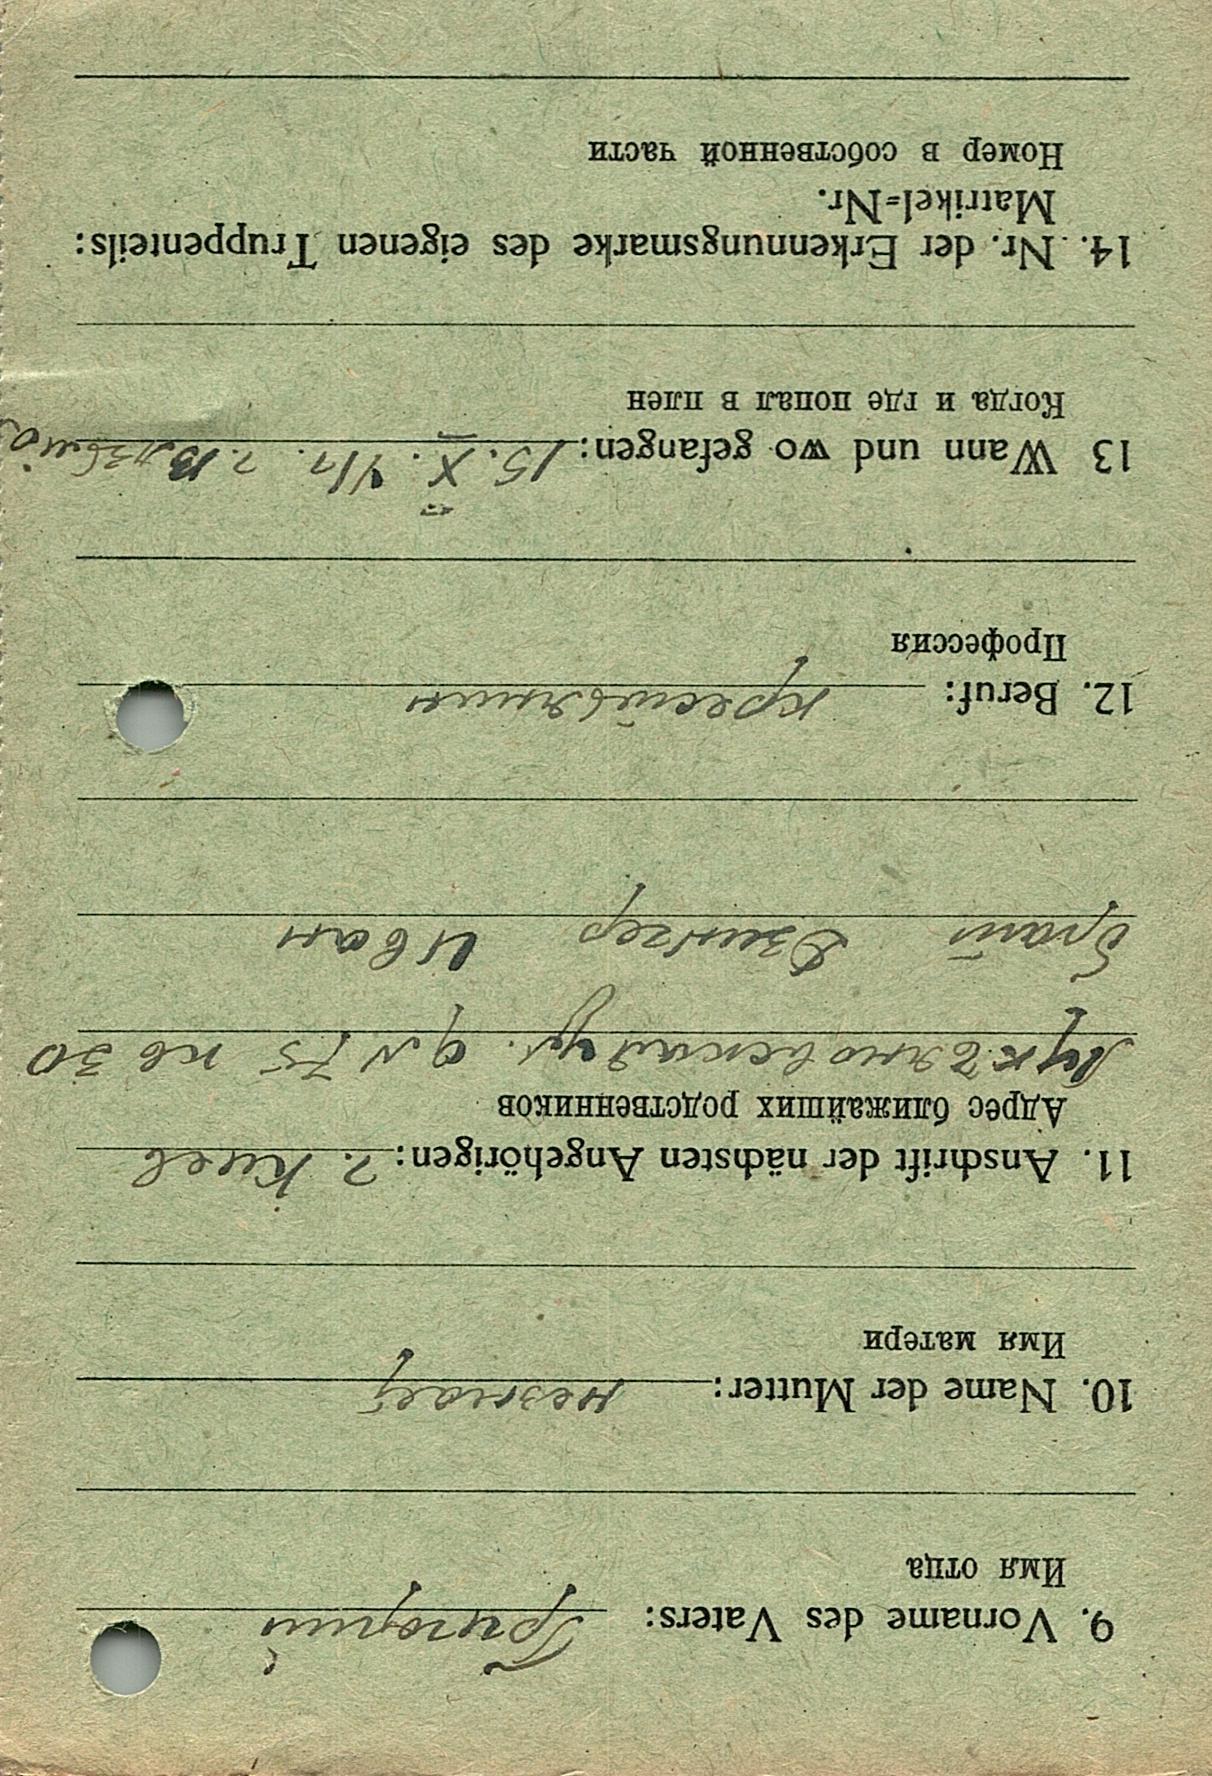 9. Vorname des Vaters: Григорий
Имя отца
10. Name der Mutter: незнает
Имя матери
11. Anschrift der nächsten Angehörigen: г. Киев
Адрес ближайших родственников
Лукъяновская ул. д N 75 кв 30
брат Иван
12. Beruf: крестьянин
Профессия
13 Wann und wo gefangen: 15. X. 41г. г.
Когда и где попал в плен
14. Nr. der Erkennungsmarke des eigenen Truppenteils:
Matrikel=Nr.
Номер в собственной части